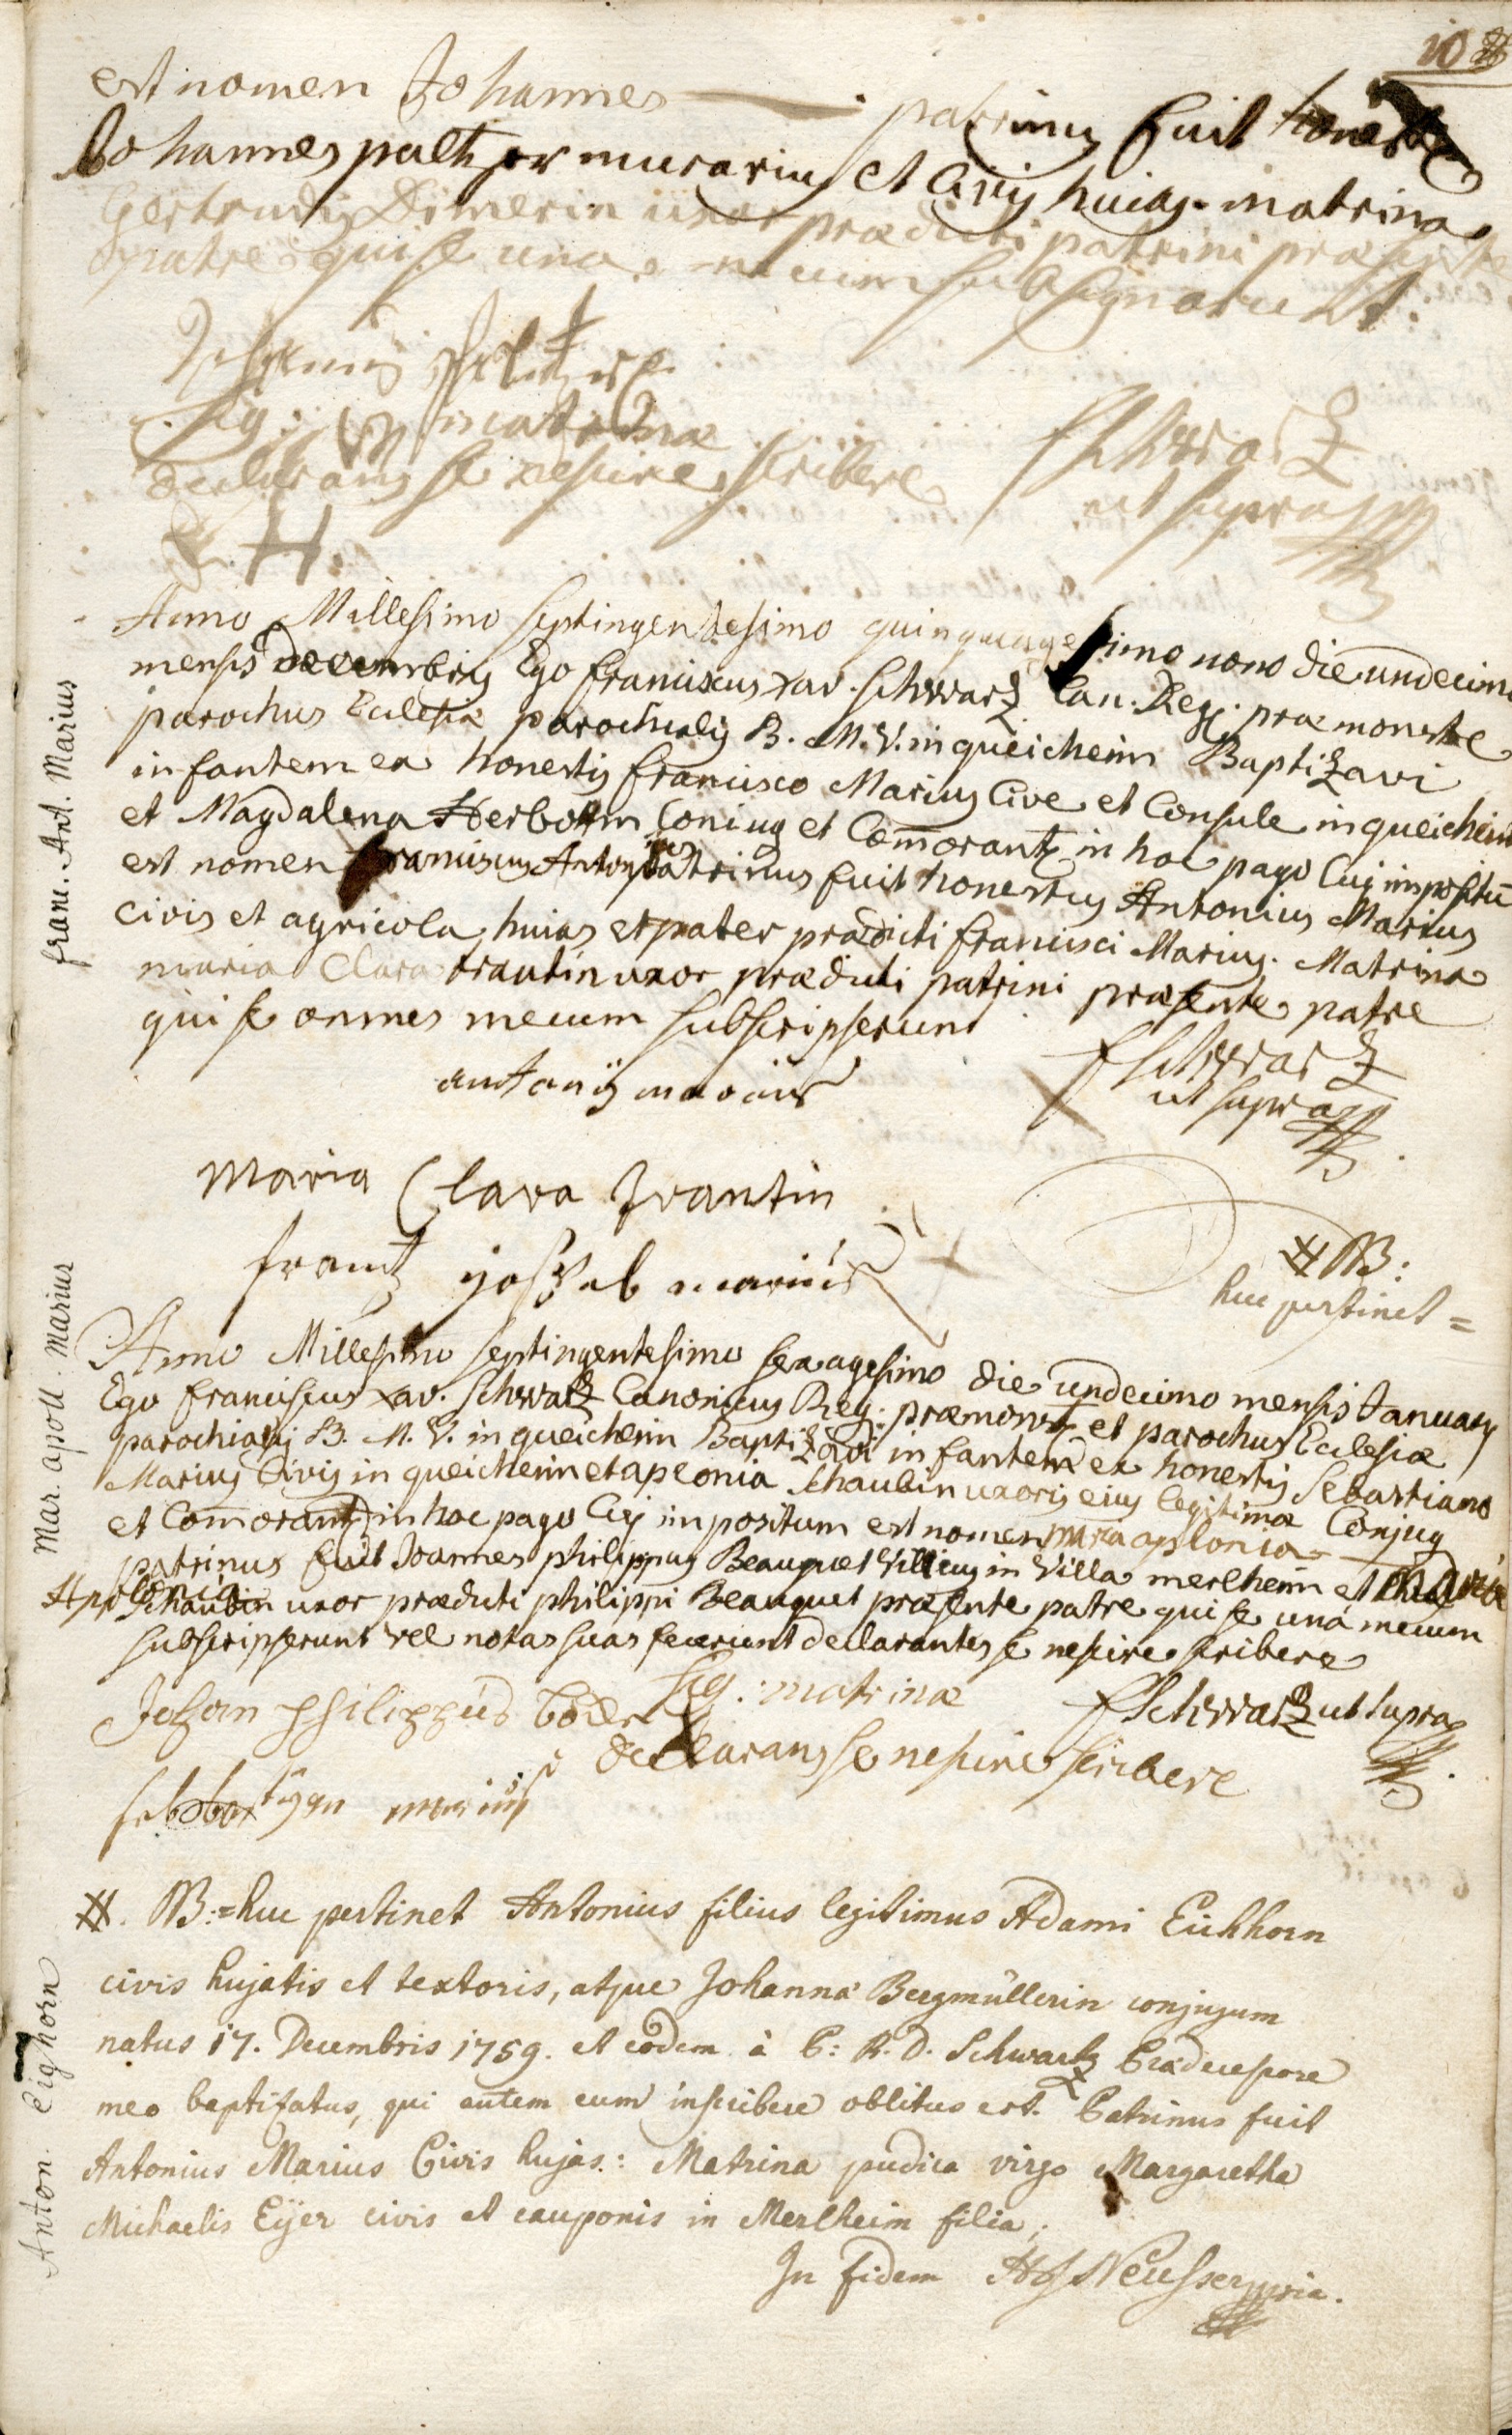 10
est nomen Johannes — patrinus fuit
Johannes paltzer murarius et Civis huias. matrina
Gertrudis Dimerin uxor prædicti patrini præsente
patre qui se una mecum subsignarunt.
Johannes
sig: matrinæ
declarans se nescire scribere
H.
fSchwarz
ut supra
Franc. Ant. Marius
Anno Millesimo septingentesimo quinquagesimo nono die undecima
mensis Decembris Ego franciscus xav. Schwarz Can. Reg. præmonstr
parochus Ecclesiæ parochialis B. M. V. in queicheim Baptizavi
infantem ex honestis francisco Marius Cive et Consule in queicheim
et Magdalena Herbohm Coniug et Comorantz in hoc pago Cuj impositũ
est nomen franciscus Antonius patrinus fuit honestus Antonius Marius
civis et agricola huias et pater prædicti francisci Marius. Matrina
maria Clara trautin uxor prædicti patrini præsente patre
qui se omnes mecum subscripserunt
antonÿ marius
fSchwarz
ut supra
Maria Clara Trautin
frantz josseb marius
# NB:
huc pertinet =
Mar. apoll. Marius
Anno Millesimo septingentesimo sexagesimo die undecimo mensis January
Ego franciscus xav. Schwarz Canonicus Reg: præmonst et parochus Ecclesiæ
parochialis B. M. V. in queicheim Baptizavi infantem ex honestis Sebastiano
Marius Civis in queicheim et aplonia Schaubin uxoris eius legitimæ Conjug
et Comorant in hoc pago Cuj impositum est nomen maria aplonia
patrinus fuit Joannes philippus Beauquet Villicus in Villa merlheim et Maria
Apolonia Schaubin uxor prædicti philippi Beauquet præsente patre qui se unà mecum
subscripserunt vel notas suas fecerunt declarantes se nescire scribere
Johan philippus
sig. matrinæ
declarans se nescire scribere
fSchwarz ut supra
marius
Anton Eighorn
#. NB:= huc pertinet Antonius filius legitimus Adami Eichhorn
civis hujatis et textoris, atque Johanna Bergmüllerin conjugum
natus 17. Decembris 1759. et eodem à P: R. D. Schwartz Prædecessore
meo baptizatus, qui autem eum inscribere oblitus est. Patrinus fuit
Antonius Marius Civis hujas.: Matrina pudica virgo Margaretha
Michaelis Eÿer civis et cauponis in Merlheim filia;
In fidem Neusser